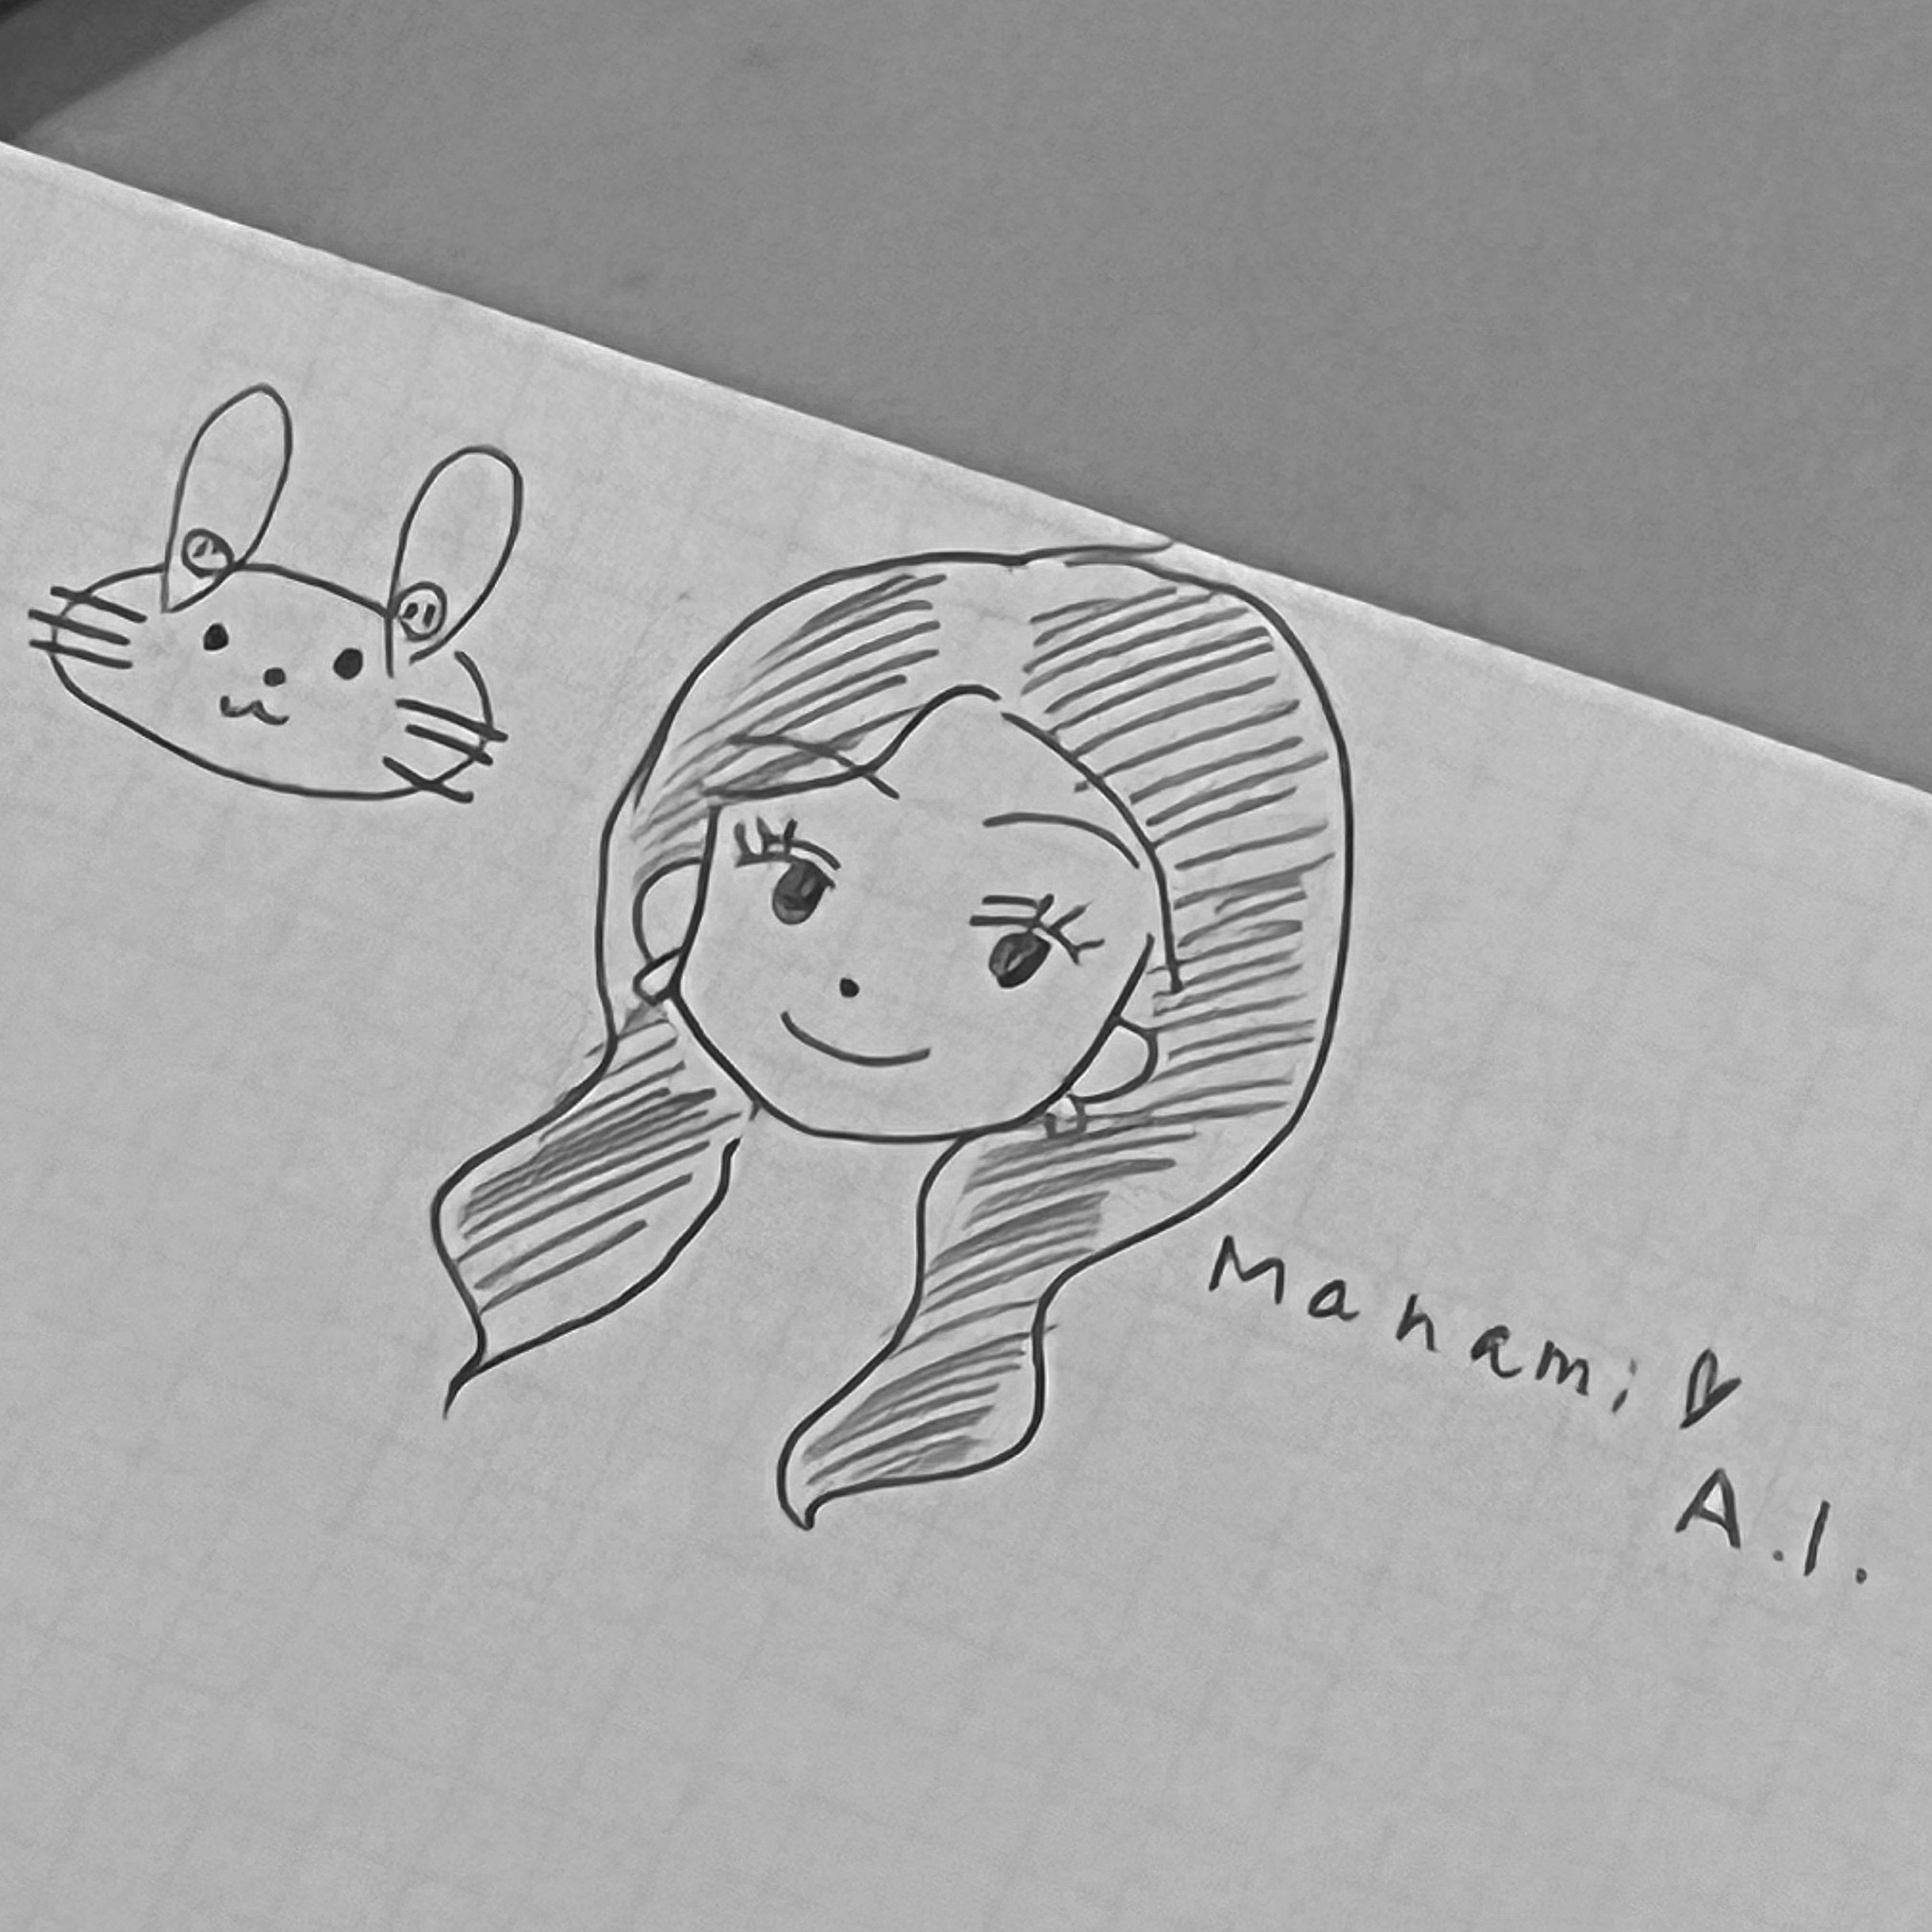 Manami ♡
A.I.